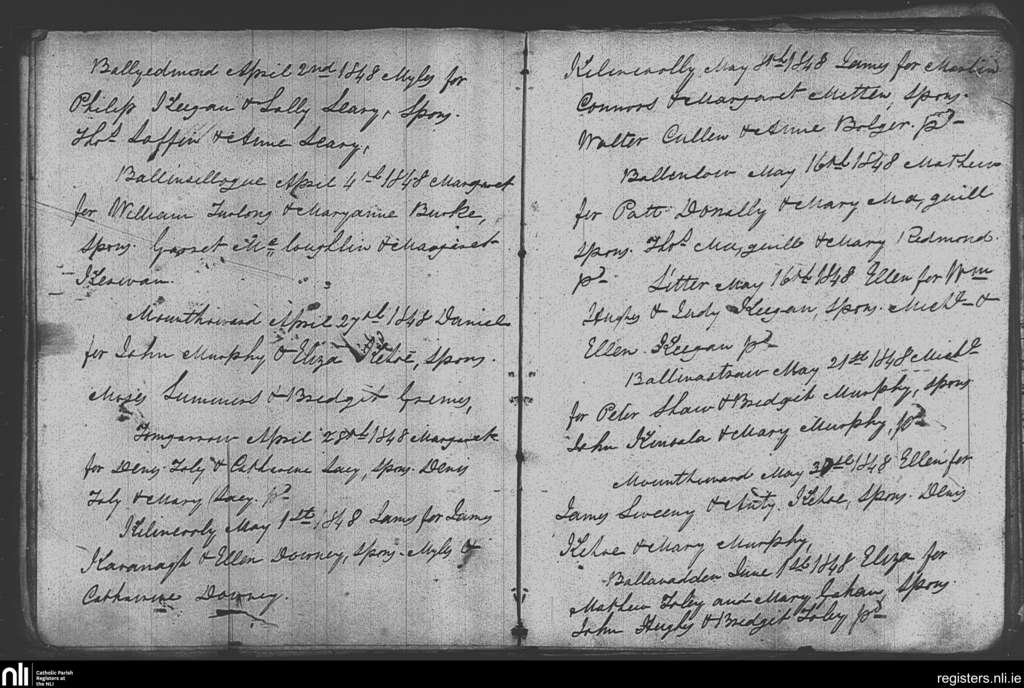 Ballyedmond April 2nd 1848 Myles for
Philip Keegan & Sally Leary, Spons.
Thos Laffin & Anne Leary,
Ballinsillogue April 4th 1848 Margaret
for William Furlong & Maryanne Burke,
Spons. Garret Mc loughlin & Margaret
Kerwan.
Mounthoward April 27th 1848 Daniel
for John Murphy & Eliza Kehoe, Spons.
Moses Summers & Bridget Grimes,
Tomgarrow April 28th 1848 Margaret
for Denis Foly & Catharine Lacy, Spons. Denis
Foly & Mary Lacy. pd
Kilincooly May 1st 1848 James for James
Kavanagh & Ellen Downey, Spons. Myles &
Catharine Downey.
Kilincoolly May 8th 1848 James for Martin
Connors & Margaret Mitten, Spons.
Walter Cullen & Anne Bolger. pd
Ballinlow May 16th 1848 Mathew
for Patt Donally & Mary Ma,guill
Spons. Thos Ma,guill & Mary Redmond.
pd Litter May 16th 1848 Ellen for Wm
Hughs & Judy Keegan, Spons. Michl &
Ellen Keegan pd
Ballinastraw May 21st 1848 Michl
for Peter Shaw & Bridget Murphy, Spons
John Kinsala & Mary Murphy, pd
Mounthoward May 1848 Ellen for
James Sweeny & Anty. Kehoe, Spons. Denis
Kehoe & Mary Murphy,
Ballavadden June 1st 1848 Eliza for
Mathew Foley and Mary Gahan, Spons
John Hughs & Bridget Foley pd
nli
Catholic Parish
Registers at
the NLI
registers.nli.ie